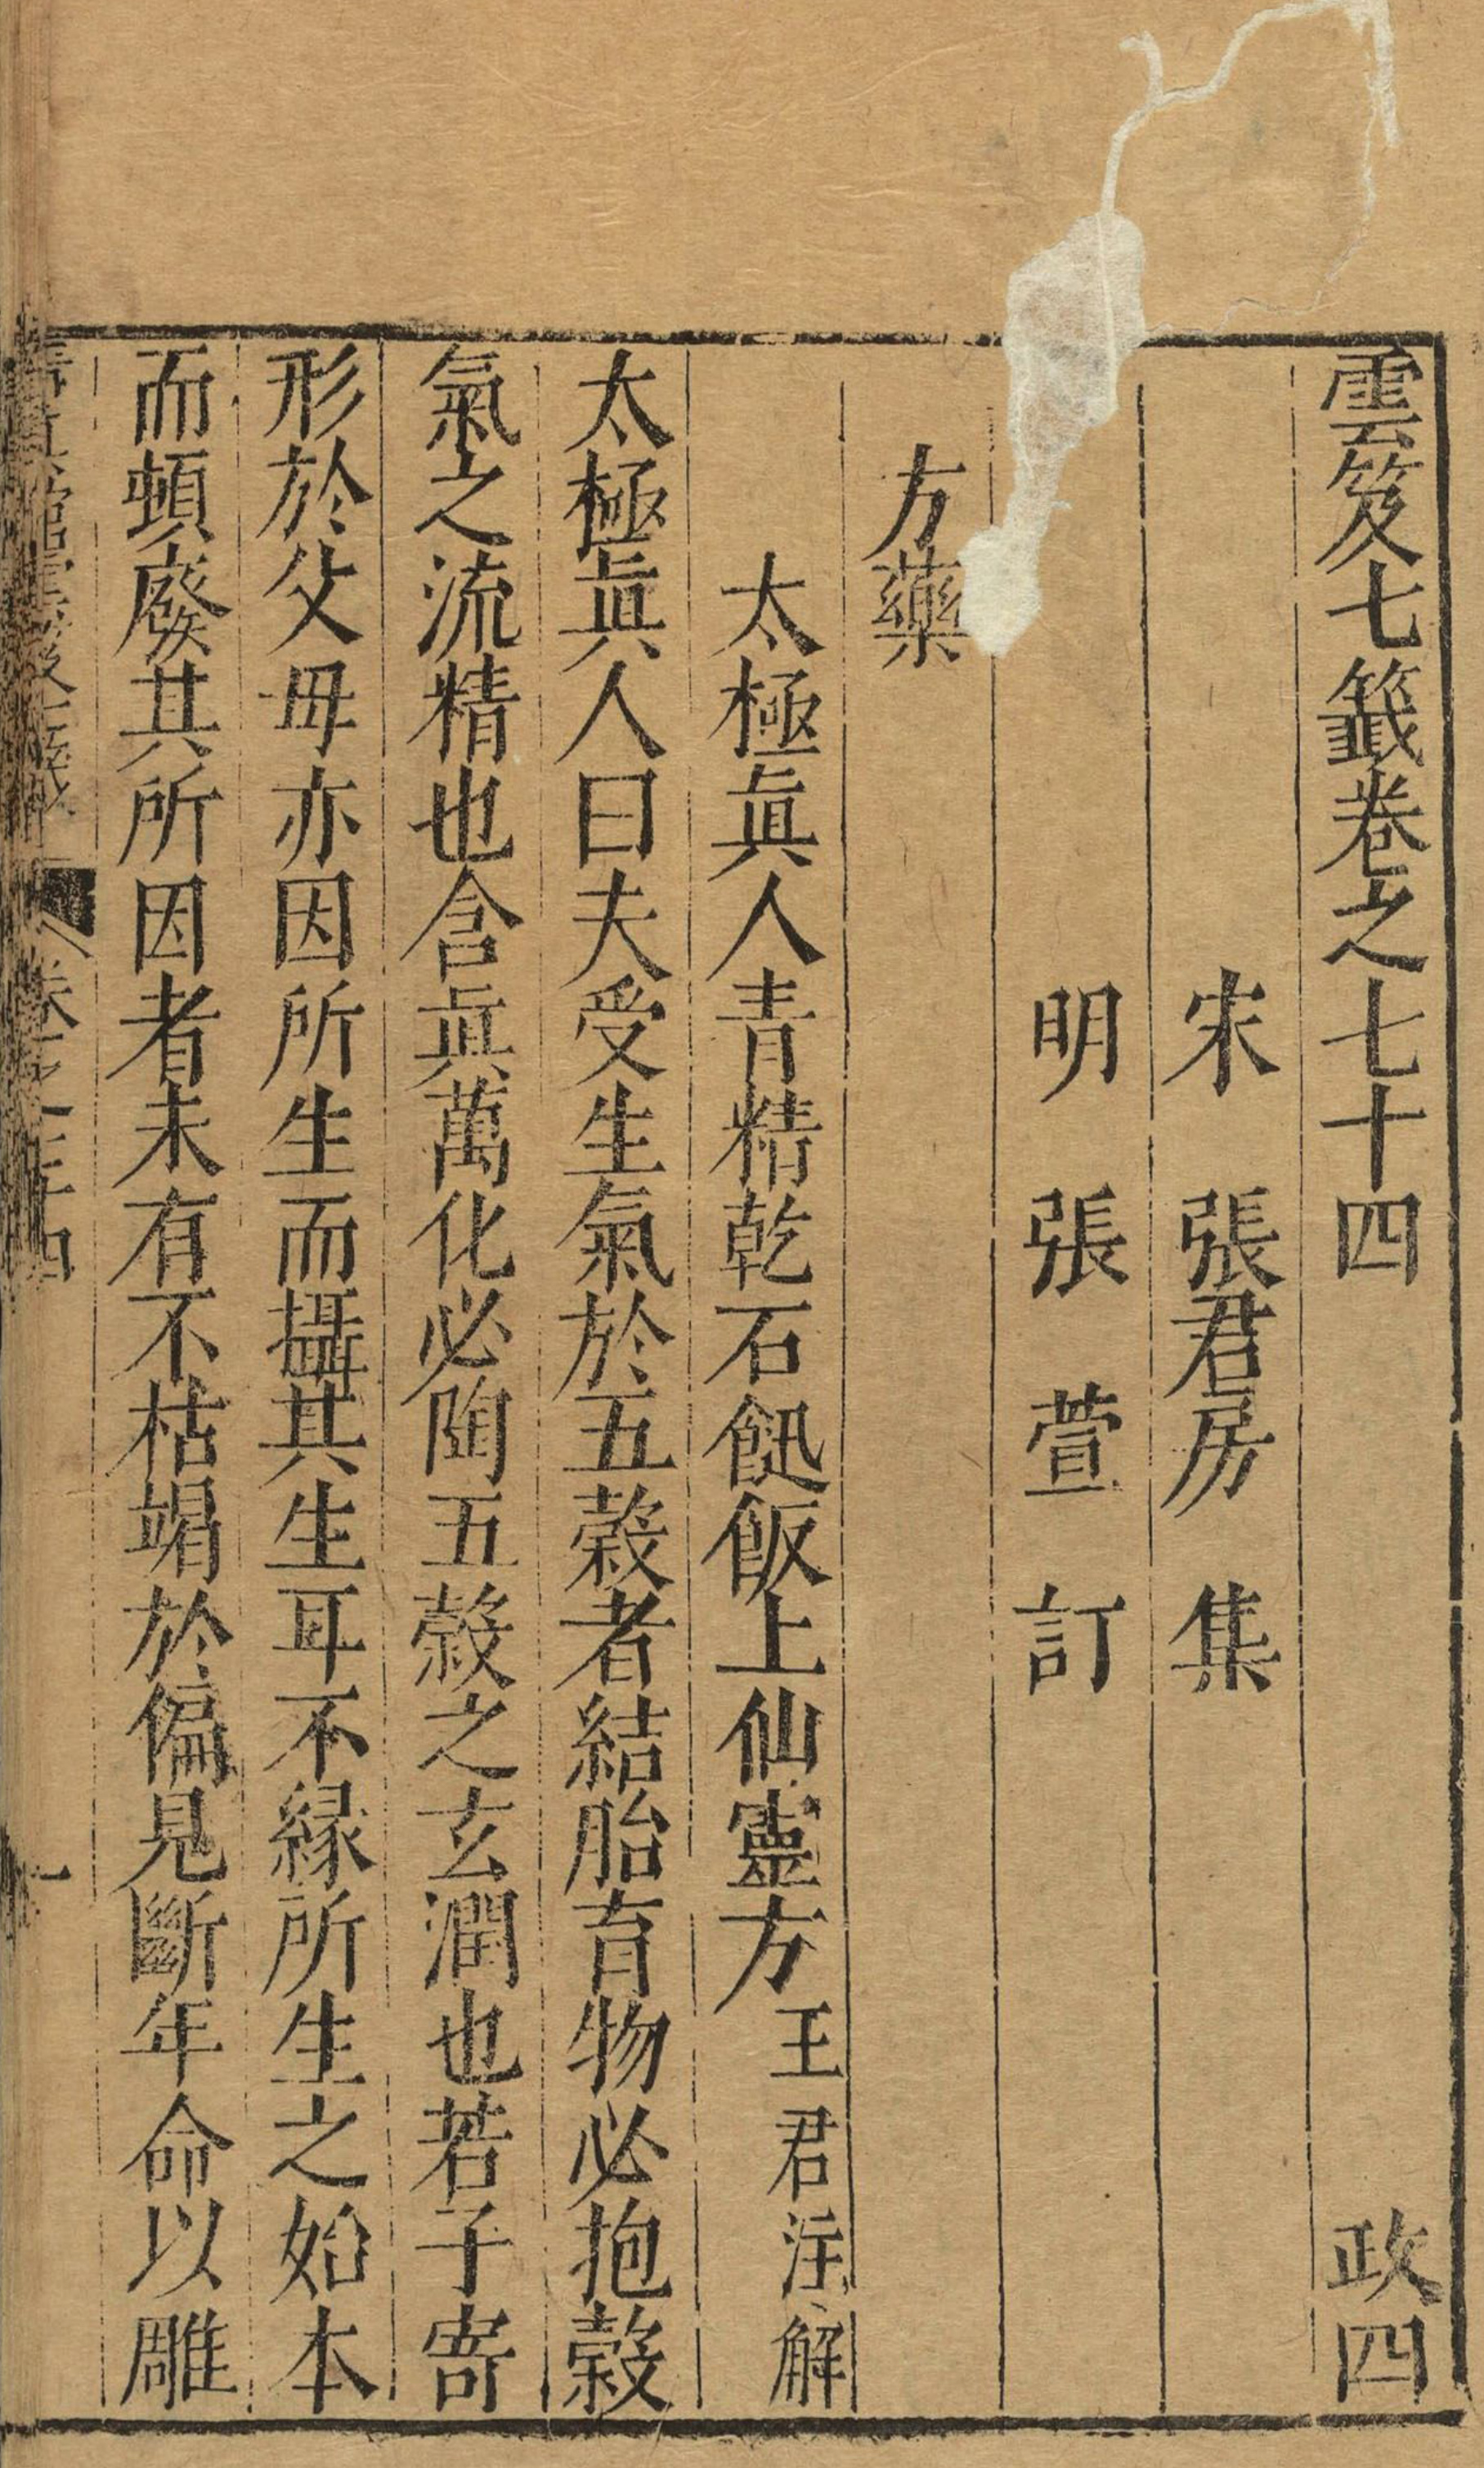 雲笈七籤卷之七十四 政四
宋 張君房 集
明 張 萱 訂
方藥
太極眞人青精乾石𩚹飯上仙靈方 王君注解
太極眞人曰夫受生氣於五榖者結胎育物必抱榖
氣之流精也含眞萬化必陶五榖之玄潤也若子寄
形於父母亦因所生而攝其生耳不緣所生之始本
而頓廢其所因者未有不枯竭於偏見斷年命以雕
卷之七十四 一